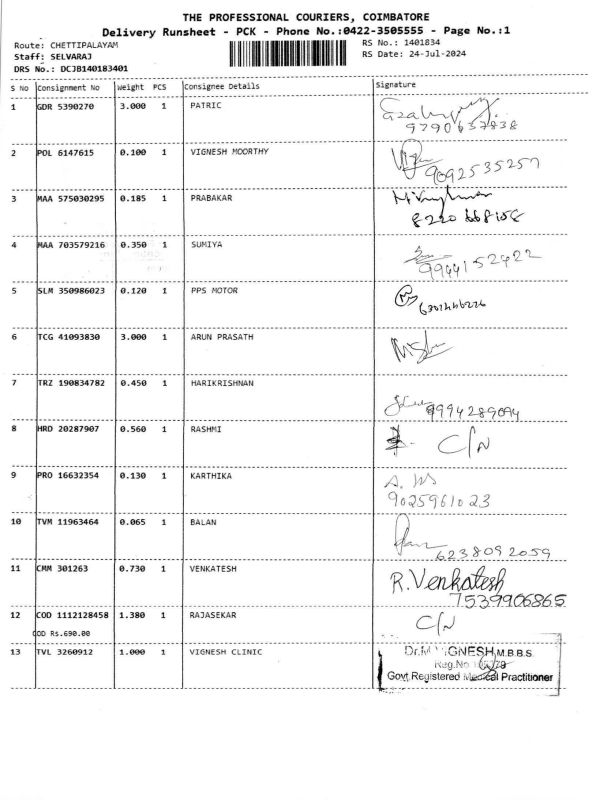 THE PROFESSIONAL COURIERS, COIMBATORE
Delivery Runsheet - PCK - Phone No.:0422-3505555 - Page No.:1
Route: CHETTIPALAYAM
RS No.: 1401834
Staff: SELVARAJ
RS Date: 24-Jul-2024
DRS No.: DCJB140183401
S No Consignment No Weight PCS Consignee Details Signature
1 GDR 5390270 3.000 1 PATRIC
9790637838
2 POL 6147615 0.100 1 VIGNESH MOORTHY
9092535257
3 MAA 575030295 0.185 1 PRABAKAR
8220 668158
4 MAA 703579216 0.350 1 SUMIYA
9944152422
5 SLM 350986023 0.120 1 PPS MOTOR
6 TCG 41093830 3.000 1 ARUN PRASATH
7 TRZ 190834782 0.450 1 HARIKRISHNAN
9994289094
8 HRD 20287907 0.560 1 RASHMI C/N
9 PRO 16632354 0.130 1 KARTHIKA
9025961023
10 TVM 11963464 0.065 1 BALAN
6238092059
11 CMM 301263 0.730 1 VENKATESH R.Venkatesh
7539906865
12 COD 1112128458 1.380 1 RAJASEKAR C/N
COD Rs.690.00
13 TVL 3260912 1.000 1 VIGNESH CLINIC Dr.M VIGNESH,M.B.B.S.
Reg.No
Govt.Registered Medical Practitioner